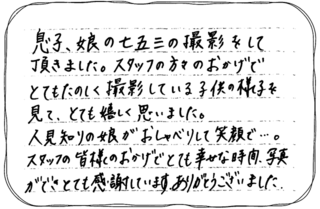 息子、娘の七五三の撮影をして
頂きました。スタッフの方々のおかげで
とてもたのしく撮影している子供の様子を
見て、とても嬉しく思いました。
人見知りの娘がおしゃべりして笑顔で…。
スタッフの皆様のおかげでとても幸せな時間、写真
ができ、とても感謝しています。ありがとうございました。